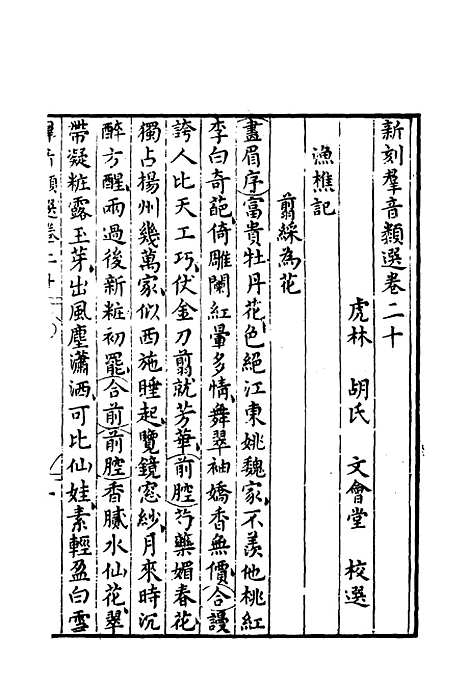 新刻羣音類選卷二十
虎林 胡氏 文會堂 校選
漁樵記
翦綵為花
畫眉序富貴牡丹花色絕江東姚魏家不羨他桃紅
李白奇葩倚雕闌紅暈多情舞翠袖嬌香無價合謾
誇人比天工巧伏金刀翦就芳華前腔芍藥媚春花
獨占揚州幾萬家似西施睡起覽鏡窓紗月來時沉
醉方醒雨過後新粧初罷合前前腔香膩水仙花翠
帶凝粧露玉芽出風塵瀟洒可比仙娃素輕盈白雪
羣音類選卷二十
一